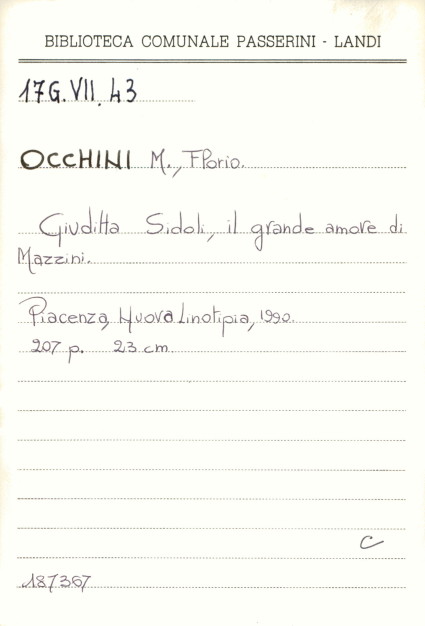 BIBLIOTECA COMUNALE PASSERINI - LANDI
17G.VII.43
OCCHINI M., Florio.
Giuditta Sidoli, il grande amore di
Mazzini.
Piacenza, Nuova Linotipia, 1990.
207 p. 23 cm.
C
187367